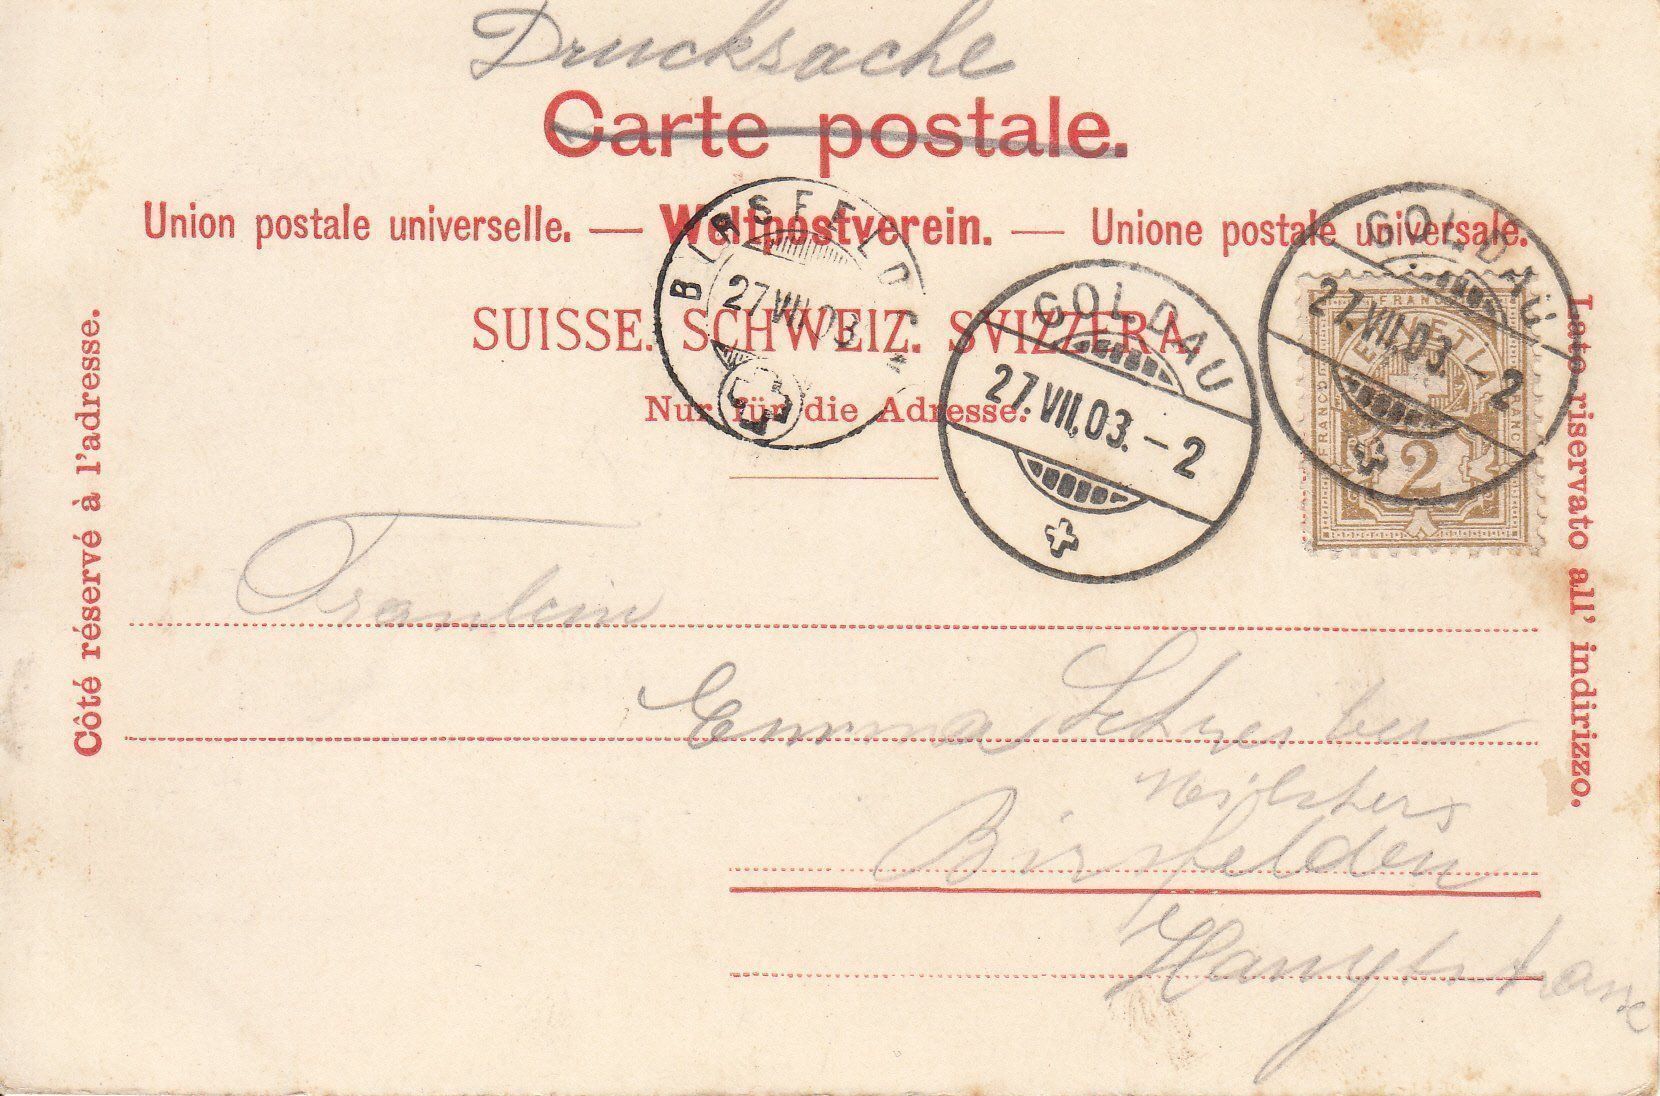 Drucksache
Carte postale.
Union postale universelle. — Weltpostverein. — Unione postale universale.
SUISSE. SCHWEIZ. SVIZZERA.
Nur für die Adresse.
Côté réservé à l'adresse.
Lato riservato all' indirizzo.
BIRSFELDEN
27.VII.03
GOLDAU
27.VII.03.-2
GOLDAU
27.VII.03.-2
FRANCO
HELVETIA
FRANCO
FRANCO
2
Fraulein
Emma Schreiber
Birsfelden